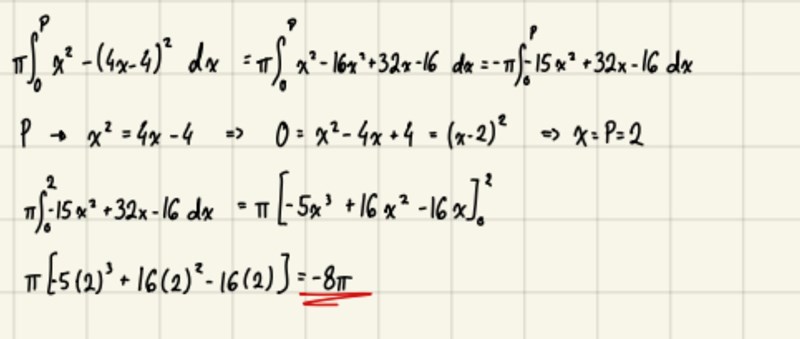 π∫₀ᵖ x² - (4x-4)² dx = π∫₀ᵖ x² - 16x² + 32x - 16 dx = -π∫₀ᵖ -15x² + 32x - 16 dx
P → x² = 4x - 4 ⇒ 0 = x² - 4x + 4 = (x-2)² ⇒ x = P = 2
π∫₀² -15x² + 32x - 16 dx = π[-5x³ + 16x² - 16x]₀²
π[-5(2)³ + 16(2)² - 16(2)] = -8π